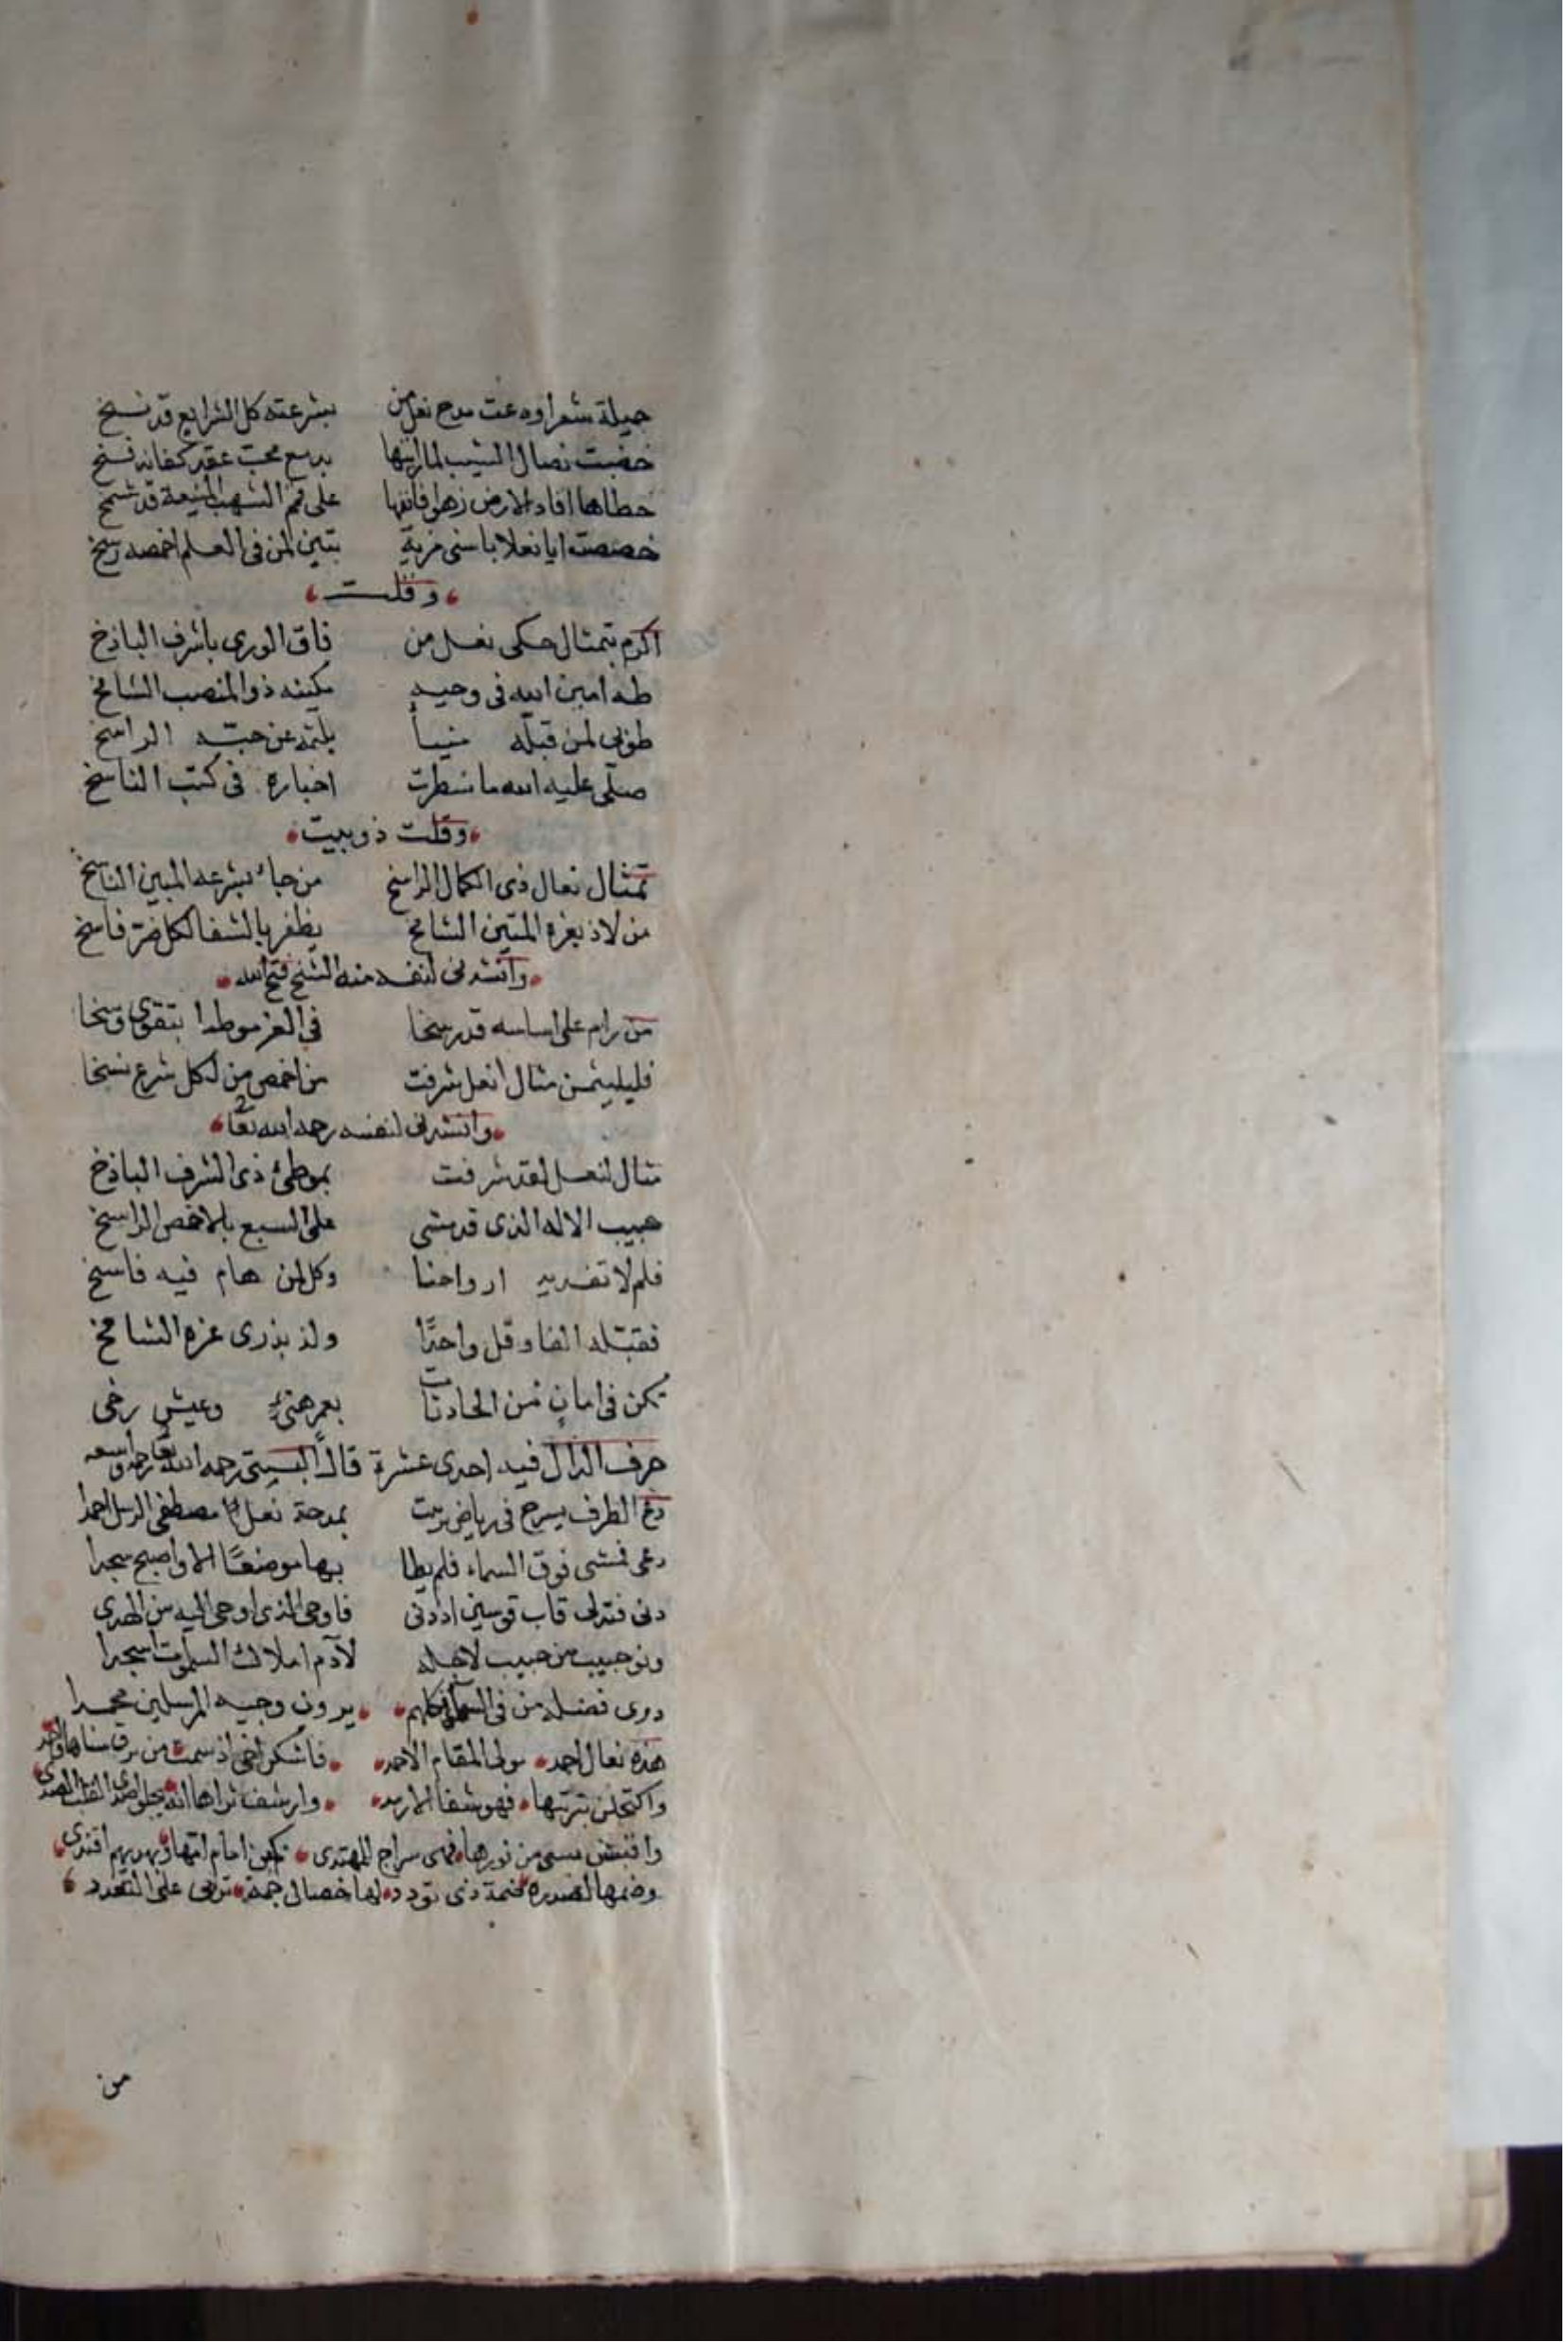 جميلة شعر اودعت مدح نعل من بشرعته كل الشرايع قد نسخ
خضبت نصال الشيب لما رايتها بدمع محب عقد كفانه فسخ
خطاها افاد الارض زهوا فانها على قمم الشهب المنيعة قد شمخ
خصصت ايا نعلا باسنى مزية بتين لمن فى العلم اخمصه رسخ
وقلت
اكرم بتمثال حكى نعل من فاق الورى باشرف الباذخ
طه امين الله فى وحيه مكينه ذو المنصب الشامخ
طوبى لمن قبله منبأ بلثمه عن حبه الراسخ
صلى عليه الله ما سطرت اخباره فى كتب الناسخ
وقلت ذوبيت
تمثال نعال ذى الكمال الراسخ من جاء بشرعه المبين الناسخ
من لاذ بعزه المتين الشامخ يظفر بالشفا لكل ضر فاسخ
وانشدنى لنفسه منه الشيخ فتح الله
من رام على اساسه قد رسخا فى العز موطدا بتقوى وسخا
فليلثمن مثال نعل شرفت من اخمص من لكل شرع نسخا
وانشدنى لنفسه رحمه الله تعا
مثال لنعل لقد شرفت بموطئ ذى الشرف الباذخ
حبيب الاله الذى قد مشى على السبع بالاخمص الراسخ
فلم لا تفديه ارواحنا وكل لمن هام فيه فاسخ
فقبله الفا وقل واحدًا ولذ بذرى عزه الشامخ
تكن فى امانٍ من الحادثات بعمرٍ هنئٍ وعيشٍ رخى
حرف الدال فيه احدى عشرة قال البستى رحمه الله تعا رحمة واسعه
دع الطرف يسرح فى رياض بمدحة نعل المصطفى الرسل احمدا
دعى فمشى فوق السماء فلم يطا بها موضعًا الا واصبح مسجدا
دنى فتدلى قاب قوسين اذ دنى فاوحى الذى اوحى اليه من الهدى
دنو حبيب من حبيب لاجله لآدم املاك السموات اسجدا
درى فضله من فى السما فكلهم يرون وجيه المرسلين محمدا
هذه نعال احمد مولى المقام الاحمد فاشكر اخى اذ سمت من برق سناها واحمد
واكتحلن بتربها فهو شفا الارمد وارشف ثراها انه يجلو صدى القلب الصدى
واقتبس من نورها فهى سراج المهتدى تكن امام امتها وبهديهم اقتدى
وضمها لصدره ضمة ذى تودد لها خصال جمة تربى على التعدد
من